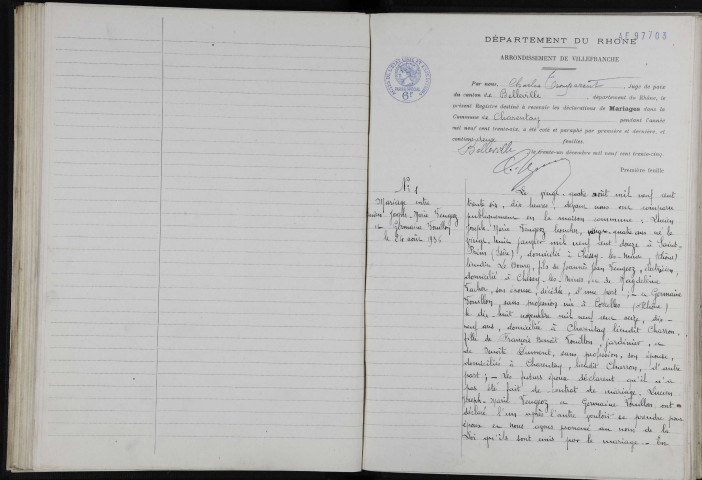 AF 97703
DÉPARTEMENT DU RHÔNE
ARRONDISSEMENT DE VILLEFRANCHE
Par nous, Charles, Juge de paix
du canton de Belleville, département du Rhône, le
présent Registre destiné à recevoir les déclarations de Mariages dans la
Commune de Charentay pendant l'année
mil neuf cent trente-six, a été coté et paraphé par première et dernière, et
contient douze feuillets.
Belleville, le trente-un décembre mil neuf cent trente-cinq.
Première feuille
N° 1
Mariage entre
Joseph-Marie
et Germaine Vouillon
le 24 août 1936
Le vingt-quatre août mil neuf cent
trente six, dix heures, devant nous ont comparu
publiquement en la maison commune, Lucien
Joseph-Marie, vingt-quatre ans, né le
vingt-huit janvier mil neuf cent douze à Saint-
(Isère), domicilié à Chessy-les-Mines (Rhône)
lieudit Le Bourg, fils de Jean,
domicilié à Chessy-les-Mines, et de Magdeleine
, son épouse, décédée, d'une part; et Germaine
Vouillon, sans profession née à Corcelles (Rhône)
le dix-huit novembre mil neuf cent seize, dix-
neuf ans, domiciliée à Charentay lieudit Charron,
fille de François Benoît Vouillon, jardinier, et
de Benoîte, sans profession, son épouse,
domiciliés à Charentay, lieudit Charron, d'autre
part; — Les futurs époux déclarent qu'il n'a
pas été fait de contrat de mariage. Lucien
Joseph-Marie et Germaine Vouillon ont
déclaré l'un après l'autre vouloir se prendre pour
époux et nous avons prononcé au nom de la
Loi qu'ils sont unis par le mariage. — En